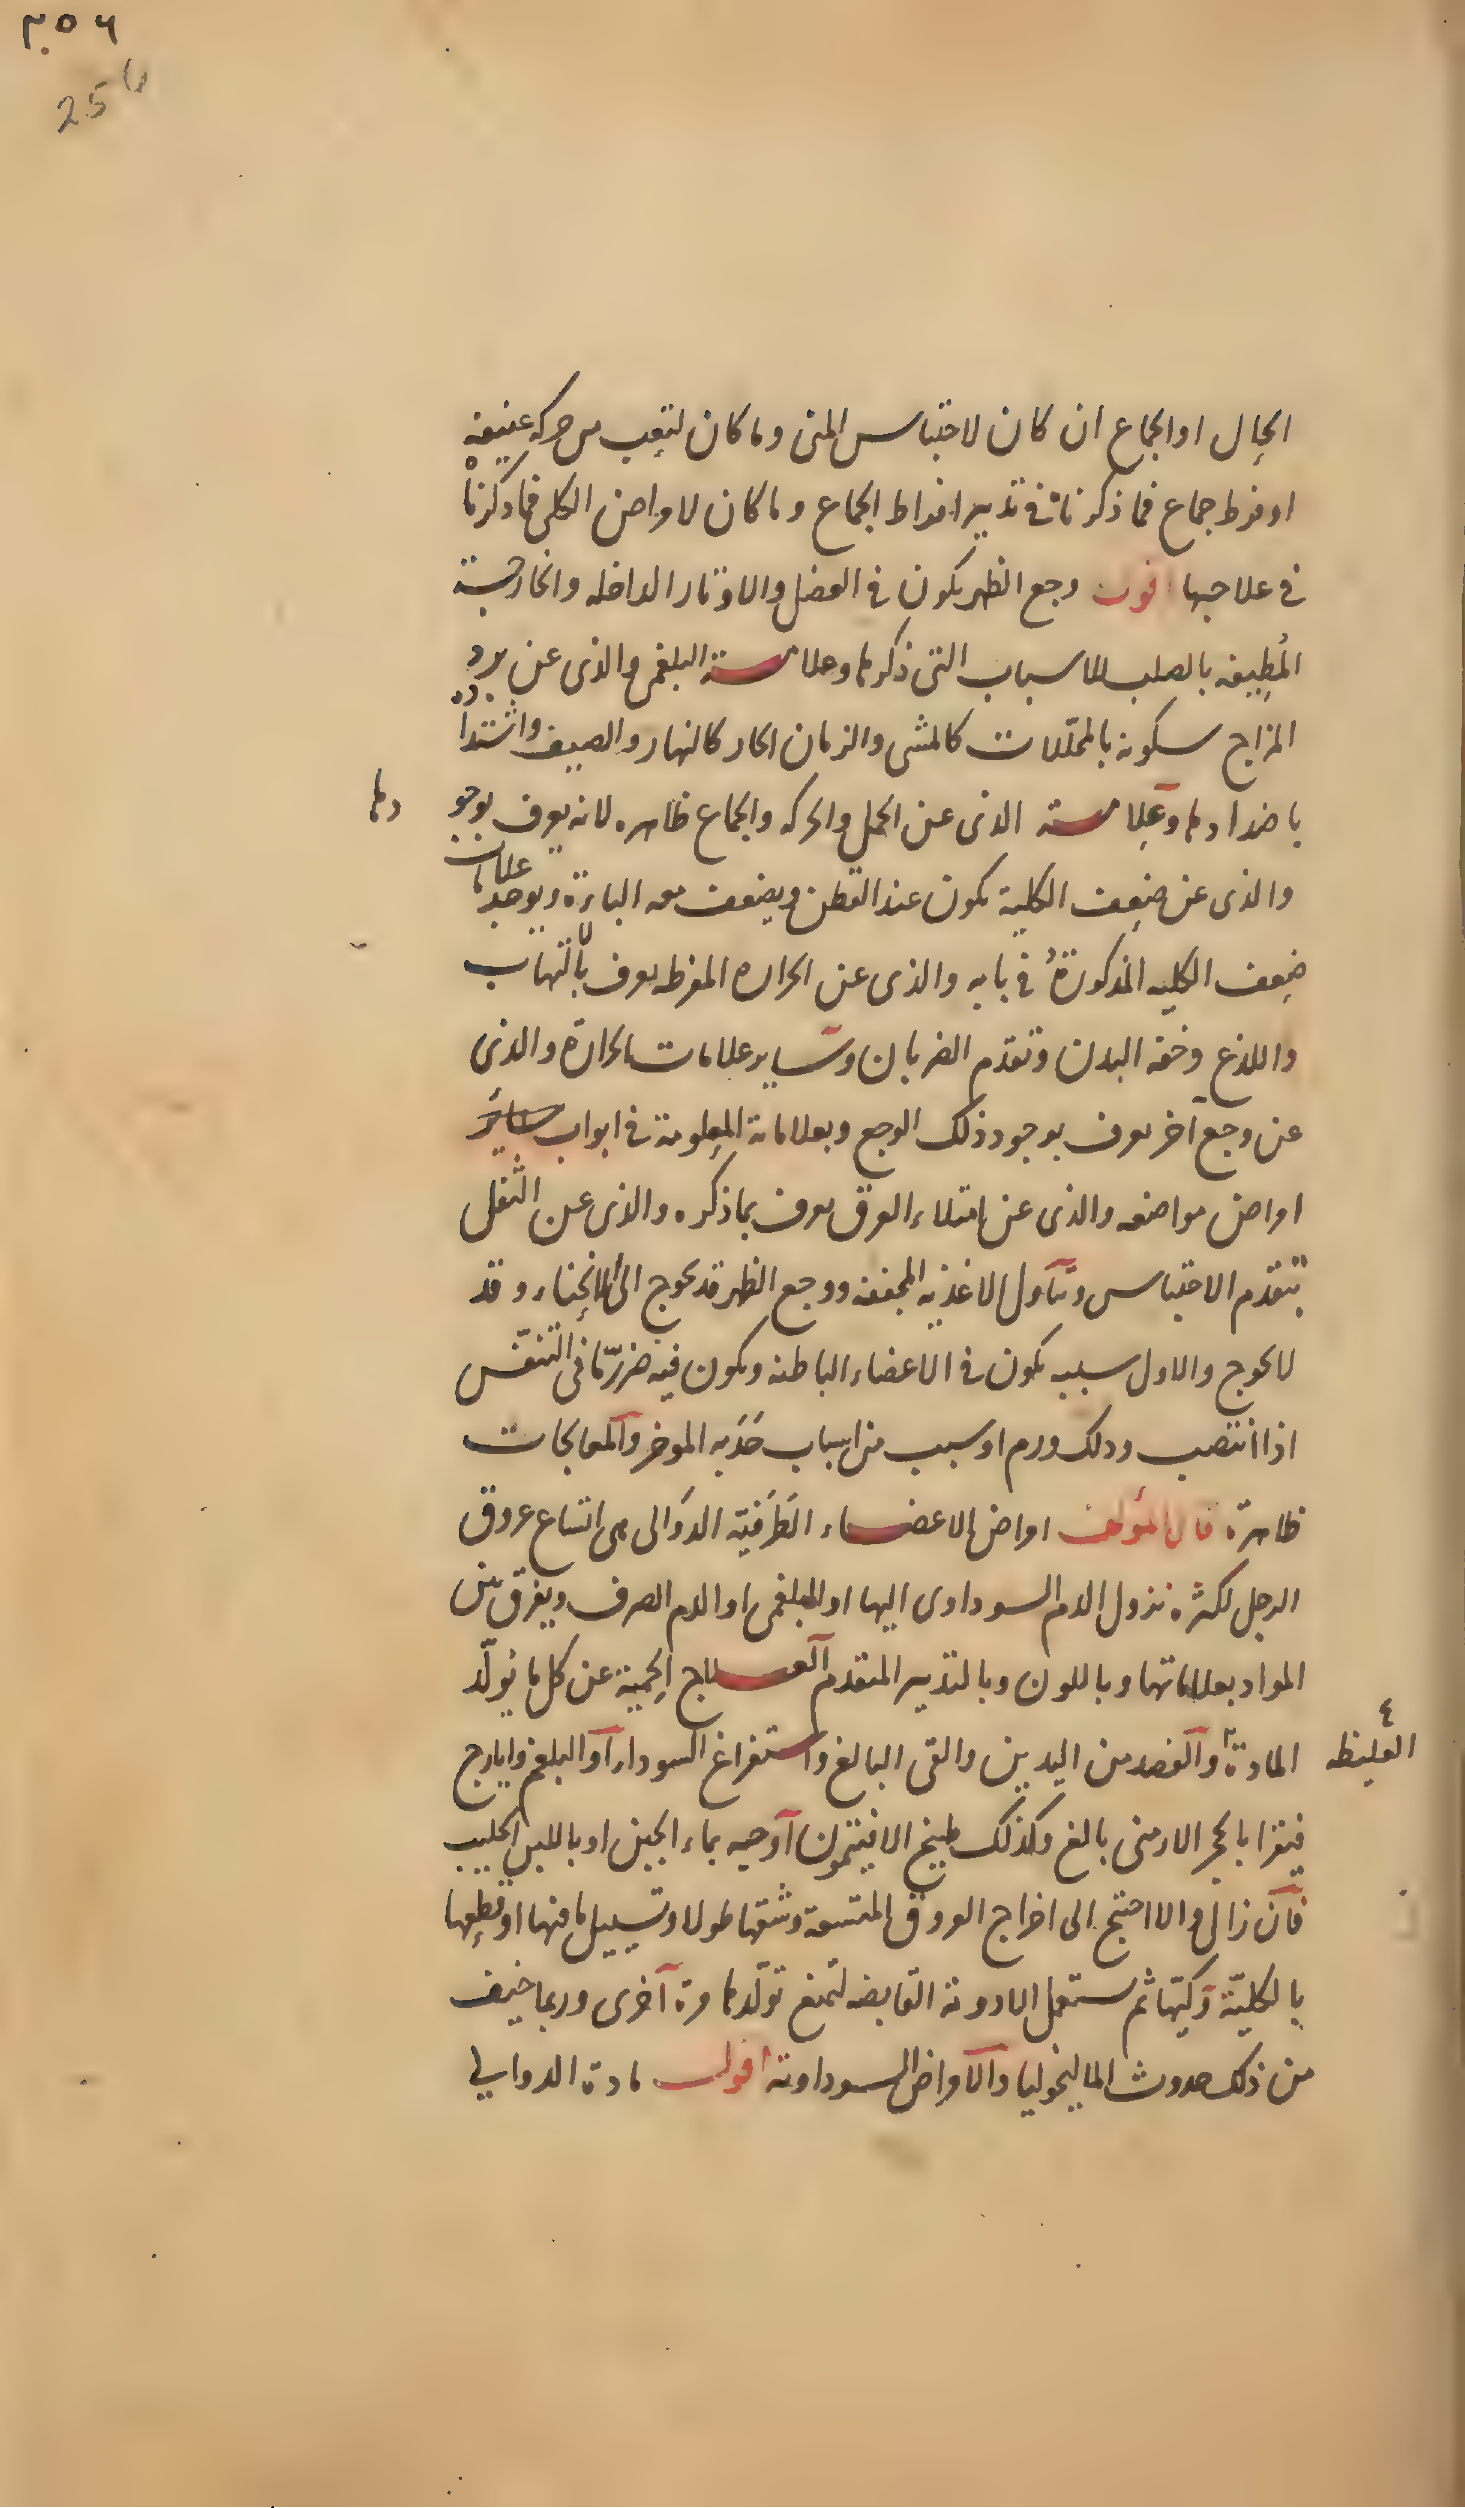 ٢٥٦
256
الحال او الجماع ان كان لاحتباس المنى وما كان لتعب من حركه عنيفه
او فرط جماع فما ذكرناه فى تدبير افراط الجماع وما كان لامراض الكلى فما ذكرناه
فى علاجها اقول وجع الظهر يكون فى العضل والاوتار الداخله والخارجية
المطيفه بالصلب للاسباب التى ذكرها وعلامة البلغمى والذى عن برد
المزاج سكونه بالمحللات كالمشى والزمان الحار كالنهار والصيف واشتداده
باضدادها وعلامة الذى عن الحمل والحركه والجماع ظاهره لانه يعرف بوجودها
والذى عن ضعف الكلية يكون عند القطن ويضعف معه الباءة ويوجد علامات
ضعف الكليه المذكورة فى بابه والذى عن الحراره المفرطه يعرف بالتهاب
واللذع وخفه البدن وتقدم الضربان وساير علامات الحرارة والذى
عن وجع آخر يعرف بوجود ذلك الوجع وبعلاماته المعلومة فى ابواب ساير
امراض مواضعه والذى عن امتلاء العرق يعرف بما ذكره والذى عن الثفل
بتقدم الاحتباس وتناول الاغذيه المجففه ووجع الظهر قد يحوج الى الانحناء وقد
لا يحوج والاول سببه يكون فى الاعضاء الباطنه ويكون فيه ضرر ما فى التنفس
اذا انتصب وذلك ورم او سبب من اسباب حدبه الموخر والمعالجات
ظاهرة قال المؤلف امراض الاعضاء الطرفيّة الدوالى هى اتساع عروق
الرجل لكثرة نزول الدم السوداوى اليها او البلغمى او الدم الصرف ويفرق بين
المواد بعلاماتها وباللون وبالتدبير المتقدم العلاج الحمية عن كل ما يولّد
المادة الغليظه والفصد من اليدين والقى البالغ واستفراغ السوداء او البلغم وايارج
فيقرا بالحجر الارمنى بالغ وكذلك طبيخ الافتيمون او حبه بماء الجبن او باللبن الحليب
فان زال والا احتيج الى اخراج العروق المتسعة وشقها طولا وتسييل ما فيها او قطعها
بالكليّة وكيّها ثم يستعمل الادوية القابضه لتمنع تولّدها مرة اخرى وربما خيف
من ذلك حدوث الماليخوليا والامراض السوداوية اقول مادة الدوالى